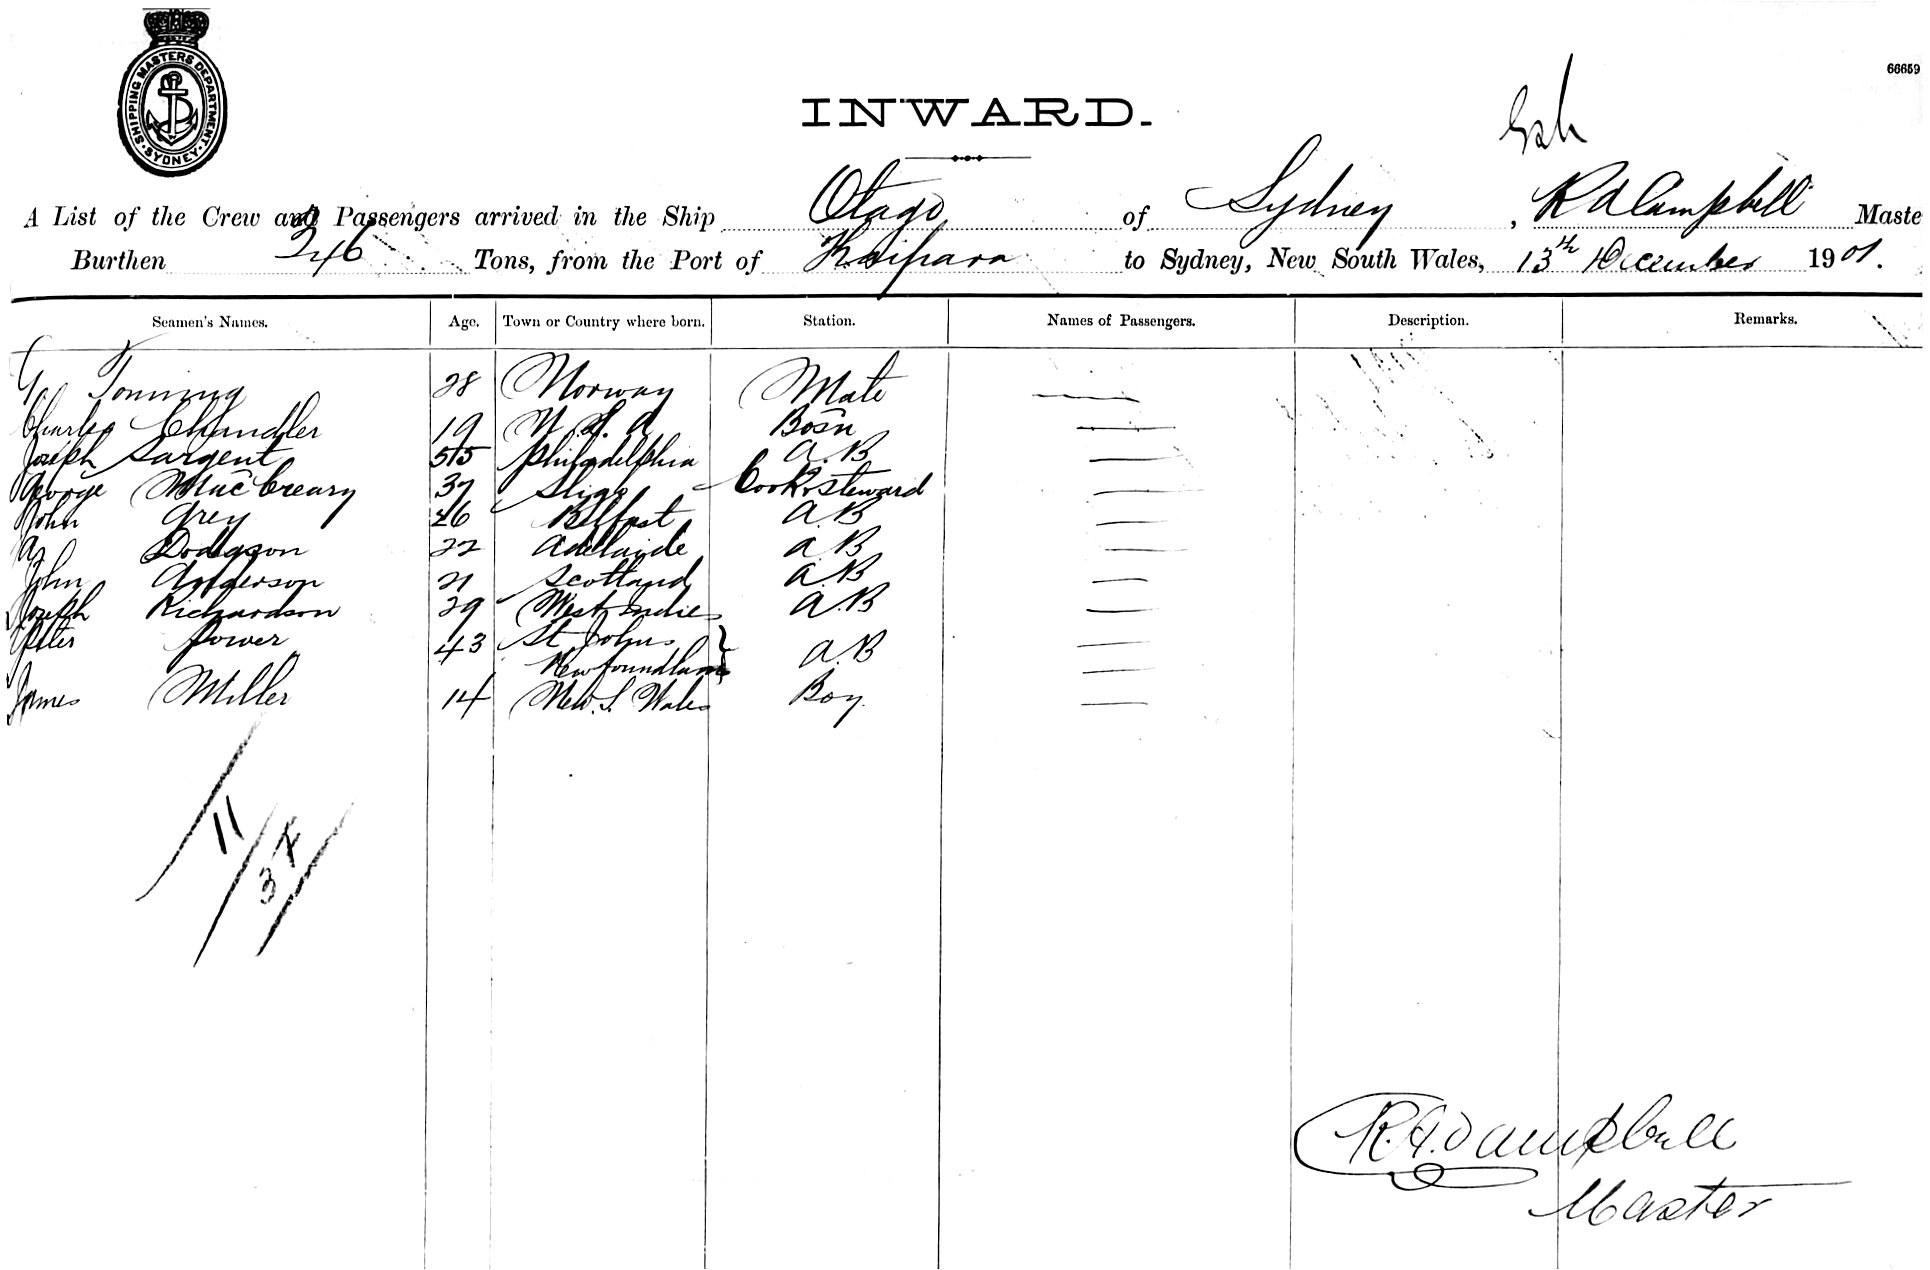 SHIPPING MASTERS DEPARTMENT
SYDNEY
66659
INWARD.
A List of the Crew and Passengers arrived in the Ship Otago of Sydney, R A Campbell Maste
Burthen 346 Tons, from the Port of Kaipara to Sydney, New South Wales, 13th December 1901.
Seamen's Names. Age. Town or Country where born. Station. Names of Passengers. Description. Remarks.
G Tonning 28 Norway Mate
Charles Chandler 19 U.S.A Bosn
Joseph Sargent 55 Philadelphia A.B
George MacCreary 37 Sligo Cook & Steward
John Grey 46 Belfast A.B
A Dodgson 22 Adelaide A.B
John Anderson 21 Scotland A.B
Joseph Richardson 29 West Indies A.B
Peter Power 43 St Johns A.B
Newfoundland
James Miller 14 New. S. Wales Boy.
11
R. A. Campbell
Master